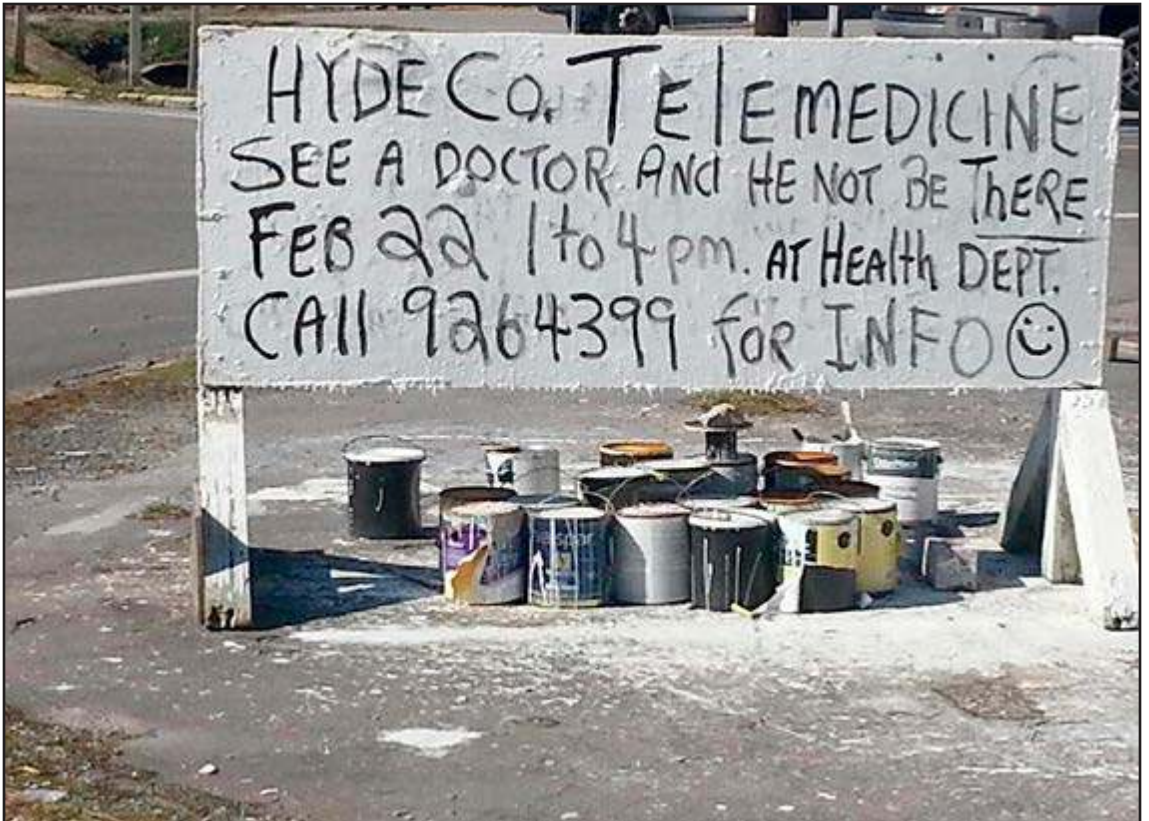 HYDE Co. TElEMEDICINE
SEE A DOCTOR ANd HE NOT BE ThERE
FEB 22 1 to 4 pm. AT HEAlth DEPT.
CAll 9264399 foR INFO